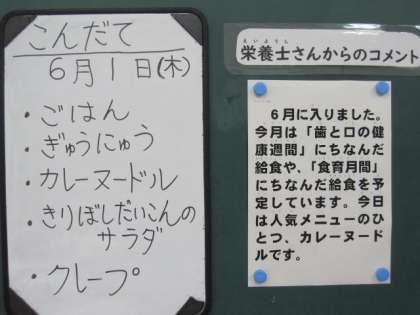 こんだて
6月1日(木)
・ごはん
・ぎゅうにゅう
・カレーヌードル
・きりぼしだいこんの
サラダ
・クレープ
えいようし
栄養士さんからのコメント
6月に入りました。
今月は「歯と口の健
康週間」にちなんだ
給食や、「食育月間」
にちなんだ給食を予
定しています。今日
は人気メニューのひ
とつ、カレーヌード
ルです。